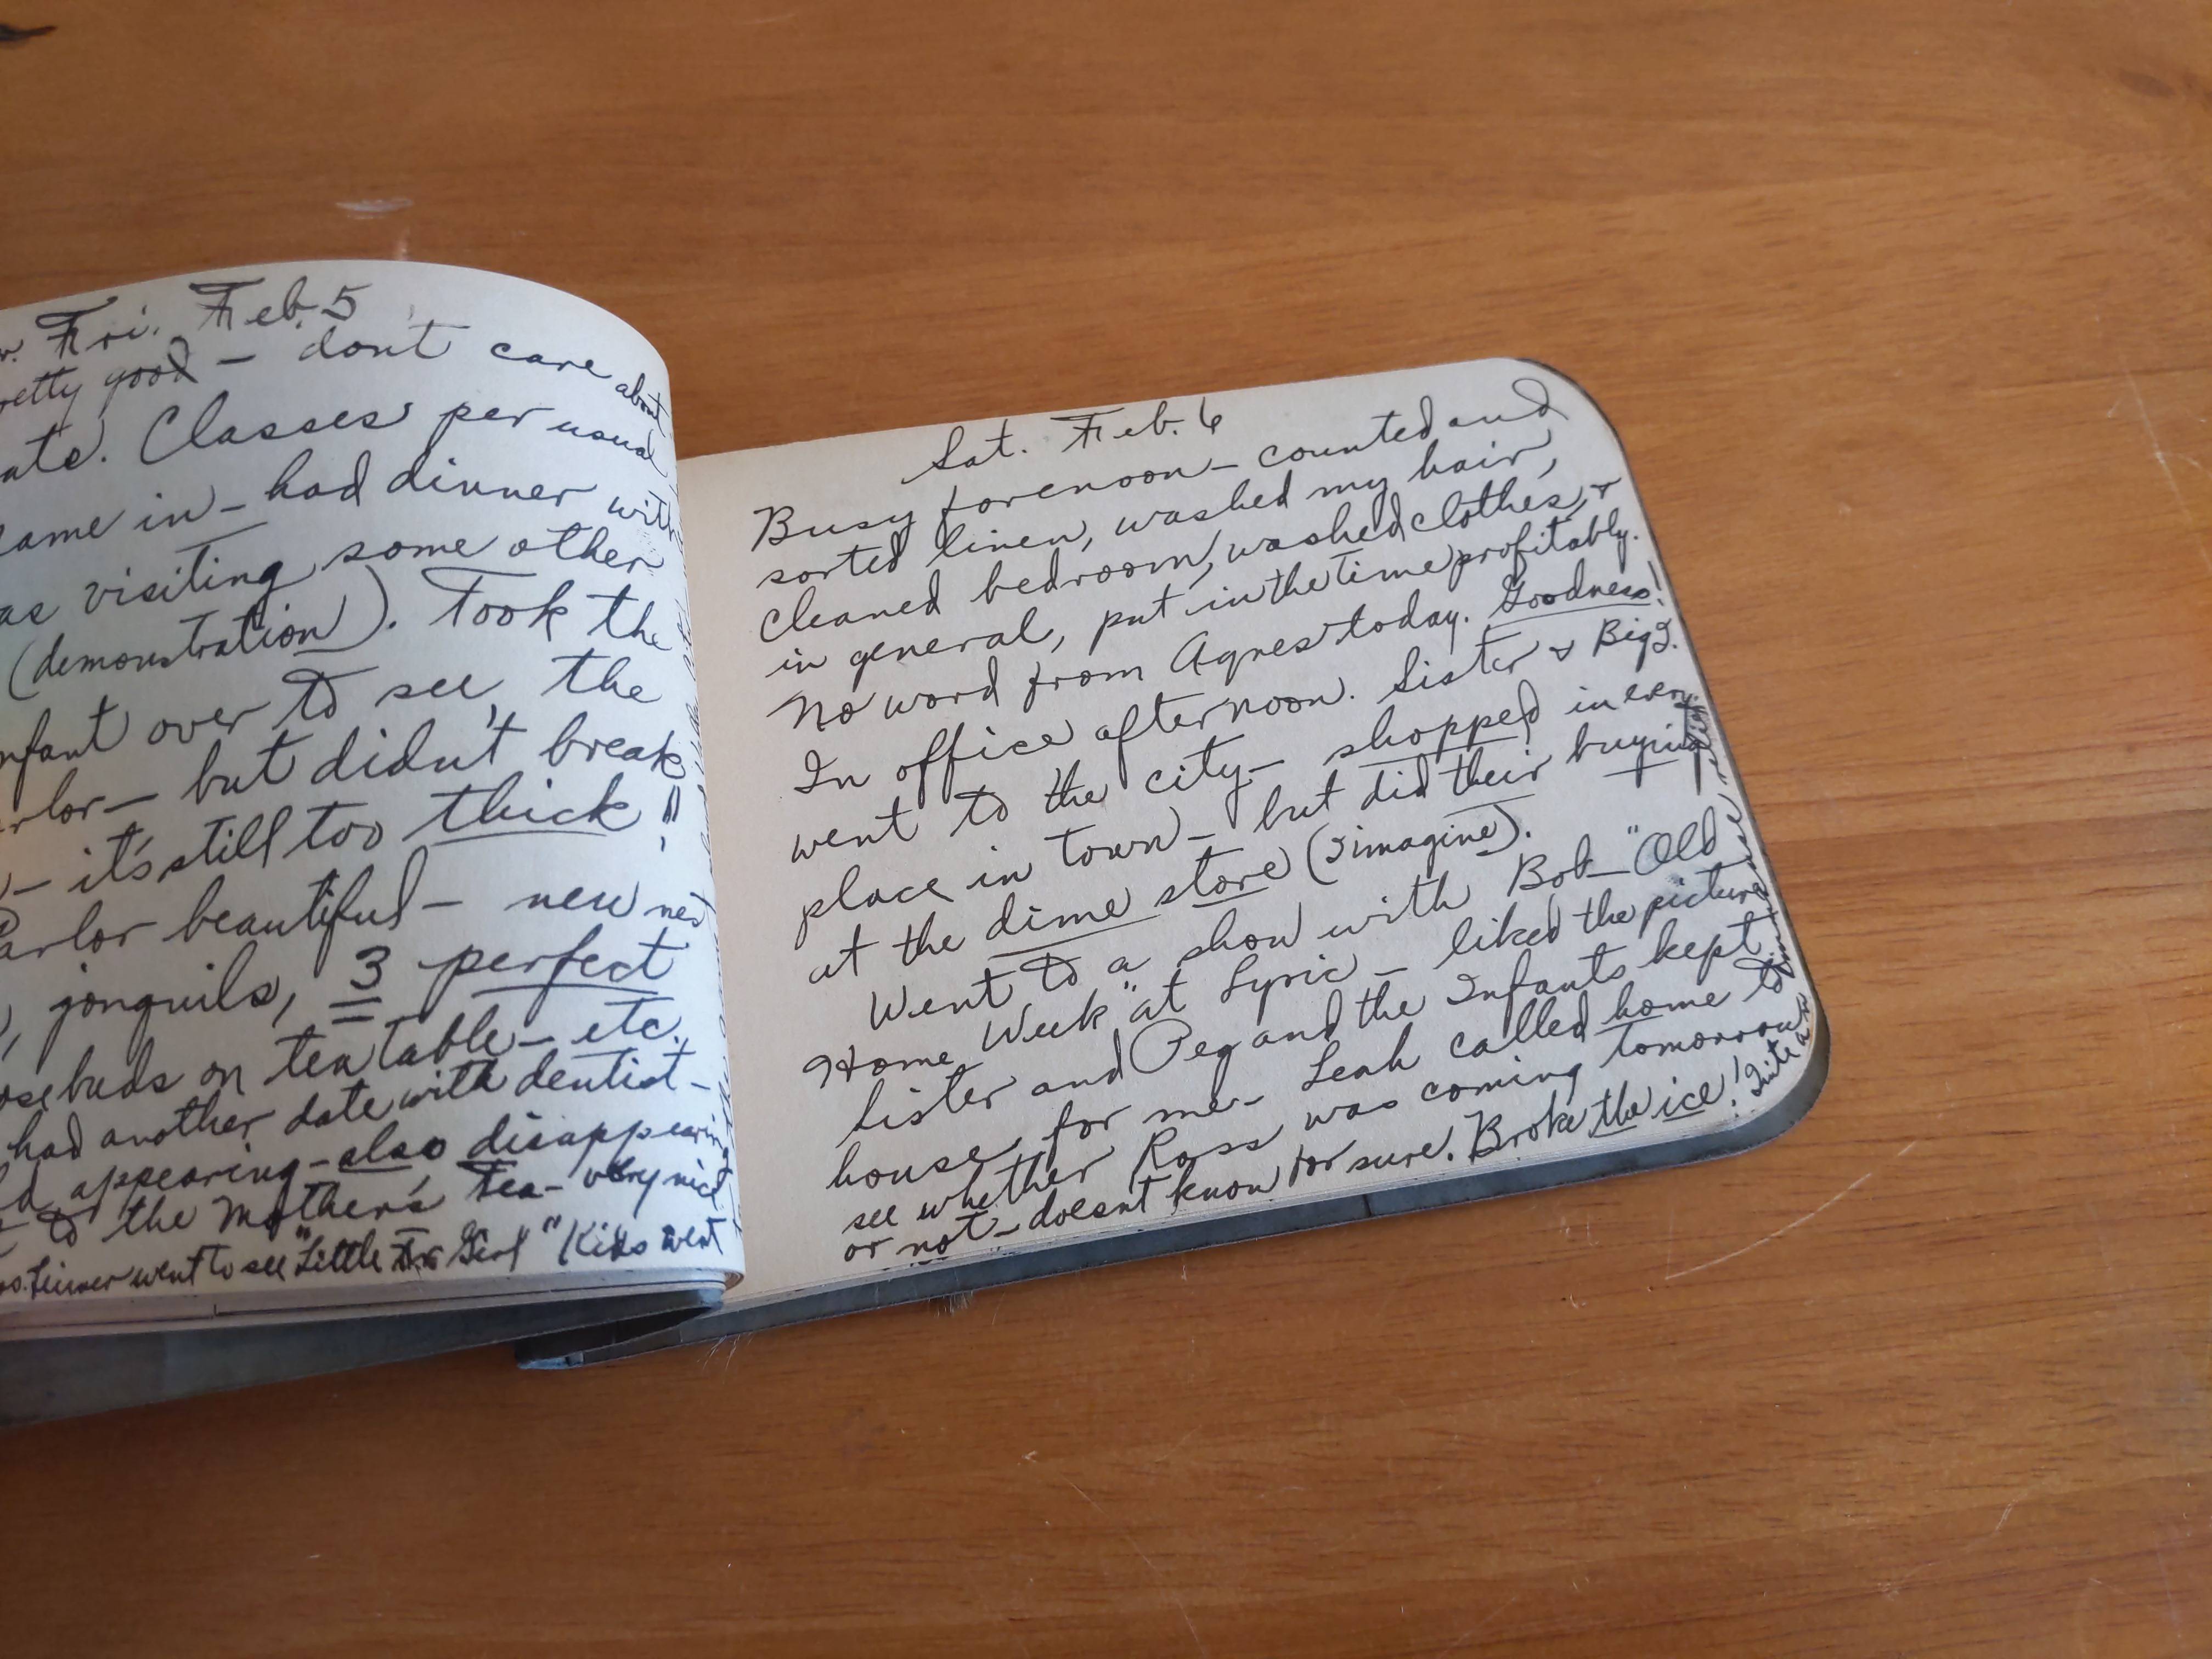 Fri. Feb. 5
retty good - don't care about
ate. Classes per usual
came in - had dinner with
as visiting some other
(demonstration). Took the
nfant over to see the
rlor - but didn't break
- it's still too thick!!
Parlor beautiful - new
, jonquils, 3 perfect
osebuds on tea table - etc.
had another date with dentist -
d appearing - also disappearing
to the Mother's Tea - very nice
went to see "Little Girl" Kids went
Sat. Feb. 6
Busy forenoon - counted and
sorted linen, washed my hair,
cleaned bedroom, washed clothes, &
in general, put in the time profitably.
No word from Agnes today. Goodness!
In office afternoon. Sister & Big I.
went to the city - shopped in every
place in town - but did their buying
at the dime store (I imagine).
Went to a show with Bob - "Old
Home Week" at Lyric - liked the picture
Sister and Peg and the Infants kept
house for me - Leah called home to
see whether Ross was coming tomorrow
or not - doesn't know for sure. Broke the ice! Quite a